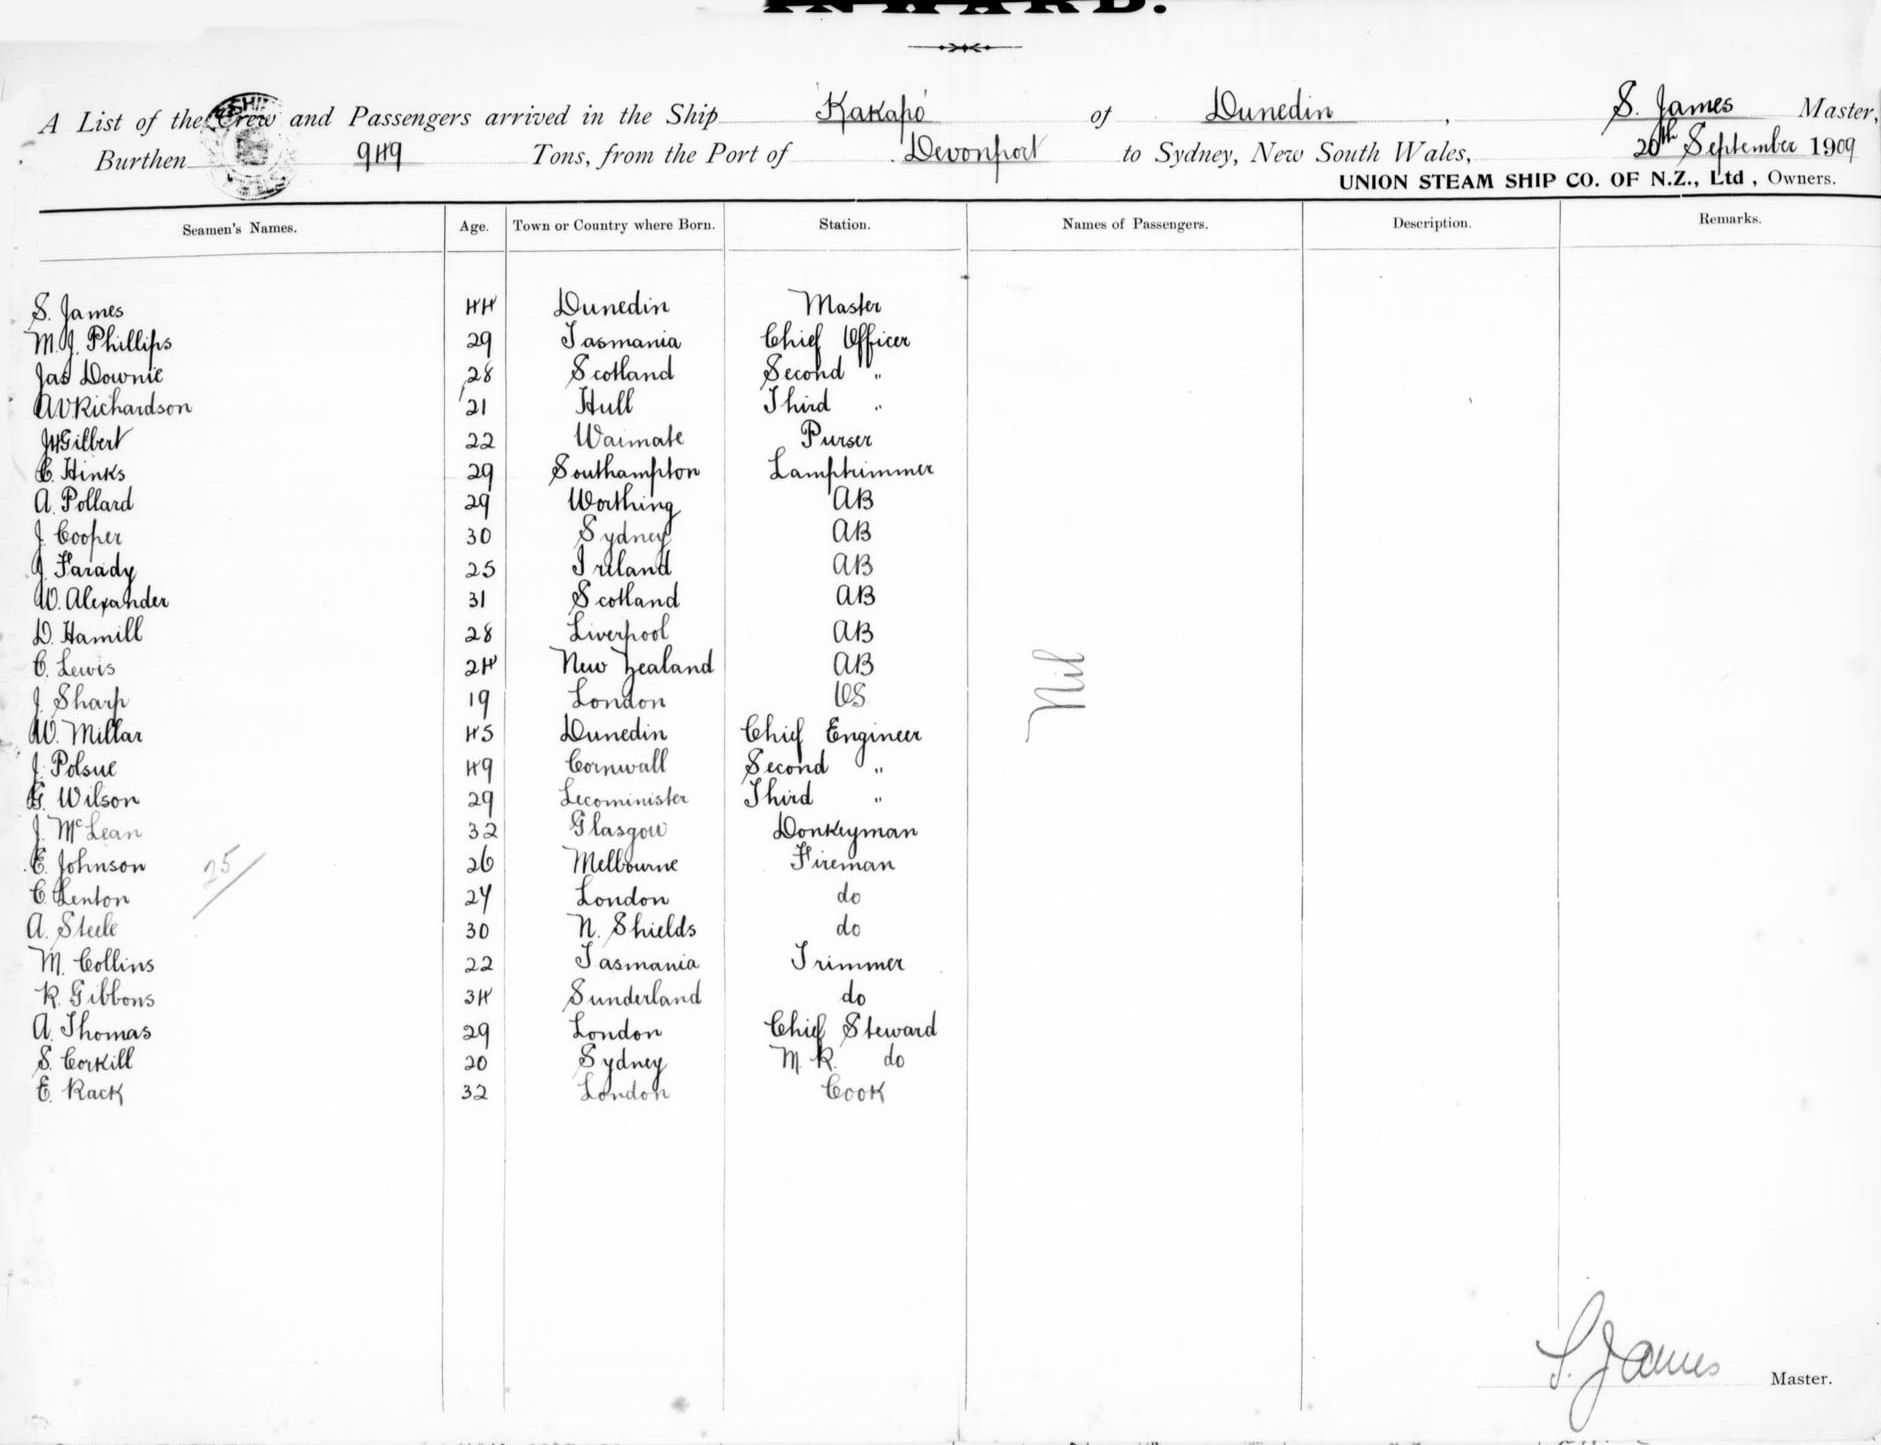 INWARD.
A List of the Crew and Passengers arrived in the Ship Kakapo of Dunedin, S. James Master,
Burthen 949 Tons, from the Port of Devonport to Sydney, New South Wales, 20th September 1909
UNION STEAM SHIP CO. OF N.Z., Ltd, Owners.
Seamen's Names. Age. Town or Country where Born. Station. Names of Passengers. Description. Remarks.
S. James 44 Dunedin Master
M. J. Phillips 29 Tasmania Chief Officer
Jas Downie 28 Scotland Second "
A V Richardson 21 Hull Third "
J H Gilbert 22 Waimate Purser
C. Hinks 29 Southampton Lamptrimmer
A. Pollard 29 Worthing AB
J. Cooper 30 Sydney AB
J. Farady 25 Ireland AB
W. Alexander 31 Scotland AB
D. Hamill 28 Liverpool AB
C. Lewis 24 New Zealand AB
J. Sharp 19 London OS
W. Millar 45 Dunedin Chief Engineer
J. Polsue 49 Cornwall Second "
G. Wilson 29 Leominister Third "
J. McLean 32 Glasgow Donkeyman
E. Johnson 26 Melbourne Fireman
C. Lenton 24 London do
A. Steele 30 N. Shields do
M. Collins 22 Tasmania Trimmer
R. Gibbons 34 Sunderland do
A. Thomas 29 London Chief Steward
S. Corkill 20 Sydney M. R. do
E. Rack 32 London Cook
Nil
25/
S. James Master.